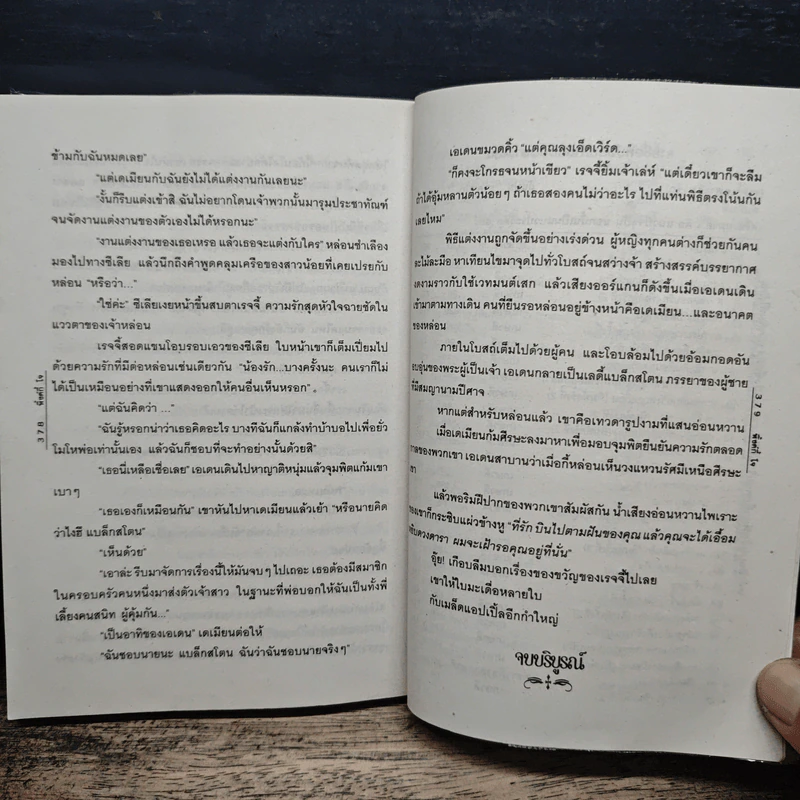 ข้ามกับฉันหมดเลย"
"แต่เดเมียนกับฉันยังไม่ได้แต่งงานกันเลยนะ"
"งั้นก็รีบแต่งเข้าสิ ฉันไม่อยากโดนเจ้าพวกนั้นมารุมประชาทัณฑ์
จนจัดงานแต่งงานของตัวเองไม่ได้หรอกนะ"
"งานแต่งงานของเธอเหรอ แล้วเธอจะแต่งกับใคร" หล่อนชำเลือง
มองไปทางซีเลีย แล้วนึกถึงคำพูดคลุมเครือของสาวน้อยที่เคยเปรยกับ
หล่อน "หรือว่า..."
"ใช่ค่ะ" ซีเลียเงยหน้าขึ้นสบตาเรจจี้ ความรักสุดหัวใจฉายชัดใน
แววตาของเจ้าหล่อน
เรจจี้สอดแขนโอบรอบเอวของซีเลีย ใบหน้าเขาก็เต็มเปี่ยมไป
ด้วยความรักที่มีต่อหล่อนเช่นเดียวกัน "น้องรัก...บางครั้งนะ คนเราก็ไม่
ได้เป็นเหมือนอย่างที่เขาแสดงออกให้คนอื่นเห็นหรอก"
"แต่ฉันคิดว่า ..."
"ฉันรู้หรอกน่าว่าเธอคิดอะไร บางทีฉันก็แกล้งทำบ้าบอไปเพื่อยั่ว
โมโหพ่อเท่านั้นเอง แล้วฉันก็ชอบที่จะทำอย่างนั้นด้วยสิ"
"เธอนี่เหลือเชื่อเลย" เอเดนเดินไปหาญาติหนุ่มแล้วจุมพิตแก้มเขา
เบาๆ
"เธอเองก็เหมือนกัน" เขาหันไปหาเดเมียนแล้วเย้า "หรือนายคิด
ว่าไงฮึ แบล็กสโตน"
"เห็นด้วย"
"เอาล่ะ รีบมาจัดการเรื่องนี้ให้มันจบๆ ไปเถอะ เธอต้องมีสมาชิก
ในครอบครัวคนหนึ่งมาส่งตัวเจ้าสาว ในฐานะที่พ่อบอกให้ฉันเป็นทั้งพี่
เลี้ยงคนสนิท ผู้คุ้มกัน..."
"เป็นอาทิของเอเดน" เดเมียนต่อให้
"ฉันชอบนายนะ แบล็กสโตน ฉันว่าฉันชอบนายจริงๆ"
378
เอเดนขมวดคิ้ว "แต่คุณลุงเอ็ดเวิร์ด..."
"ก็คงจะโกรธจนหน้าเขียว" เรจจี้ยิ้มเจ้าเล่ห์ "แต่เดี๋ยวเขาก็จะลืม
ถ้าได้อุ้มหลานตัวน้อยๆ ถ้าเธอสองคนไม่ว่าอะไร ไปที่แท่นพิธีตรงโน้นกัน
เลยไหม"
พิธีแต่งงานถูกจัดขึ้นอย่างเร่งด่วน ผู้หญิงทุกคนต่างก็ช่วยกันคน
ละไม้ละมือ หาเทียนไขมาจุดไปทั่วโบสถ์จนสว่างจ้า สร้างสรรค์บรรยากาศ
งดงามราวกับใช้เวทมนต์เสก แล้วเสียงออร์แกนก็ดังขึ้นเมื่อเอเดนเดิน
เข้ามาตามทางเดิน คนที่ยืนรอหล่อนอยู่ข้างหน้าคือเดเมียน...และอนาคต
ของหล่อน
ภายในโบสถ์เต็มไปด้วยผู้คน และโอบล้อมไปด้วยอ้อมกอดอัน
อบอุ่นของพระผู้เป็นเจ้า เอเดนกลายเป็นเลดี้แบล็กสโตน ภรรยาของผู้ชาย
ที่มีสมญานามปีศาจ
หากแต่สำหรับหล่อนแล้ว เขาคือเทวดารูปงามที่แสนอ่อนหวาน
เมื่อเดเมียนก้มศีรษะลงมาหาเพื่อมอบจุมพิตยืนยันความรักตลอด
กาลของพวกเขา เอเดนสาบานว่าเมื่อกี้หล่อนเห็นวงแหวนรัศมีเหนือศีรษะ
เขา
แล้วพอริมฝีปากของพวกเขาสัมผัสกัน น้ำเสียงอ่อนหวานไพเราะ
ของเขาก็กระซิบแผ่วข้างหู "ที่รัก บินไปตามฝันของคุณ แล้วคุณจะได้เอื้อม
หยิบดวงดารา ผมจะเฝ้ารอคุณอยู่ที่นั่น"
อุ๊ย! เกือบลืมบอกเรื่องของขวัญของเรจจี้ไปเลย
เขาให้ใบมะเดื่อหลายใบ
กับเมล็ดแอปเปิ้ลอีกกำใหญ่
จบบริบูรณ์
379